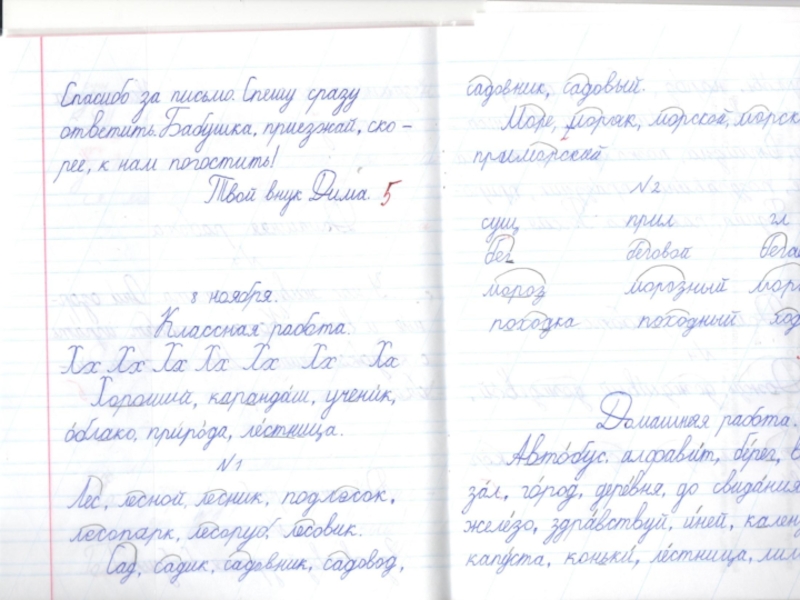 Спасибо за письмо. Спешу сразу
ответить. Бабушка, приезжай, ско-
рее, к нам погостить!
Твой внук Дима. 5
8 ноября.
Классная работа
Хх Хх Хх Хх Хх Хх Хх
Хороша, карандаш, ученик,
облако, природа, лестница.
N1
Лес, лесной, лесник, подлесок,
лесопарк, лесоруб, лесовик.
Сад, садик, садовник, садовод,
садовник, садовый.
Море, моряк, морской,
приморский
N2
сущ. прил гл
бег беговой
мороз морозный
походка походный
Домашняя работа.
Автобус, алфавит, берег,
зал, город, деревня, до свидания
железо, здравствуй, иней,
капуста, коньки, лестница,